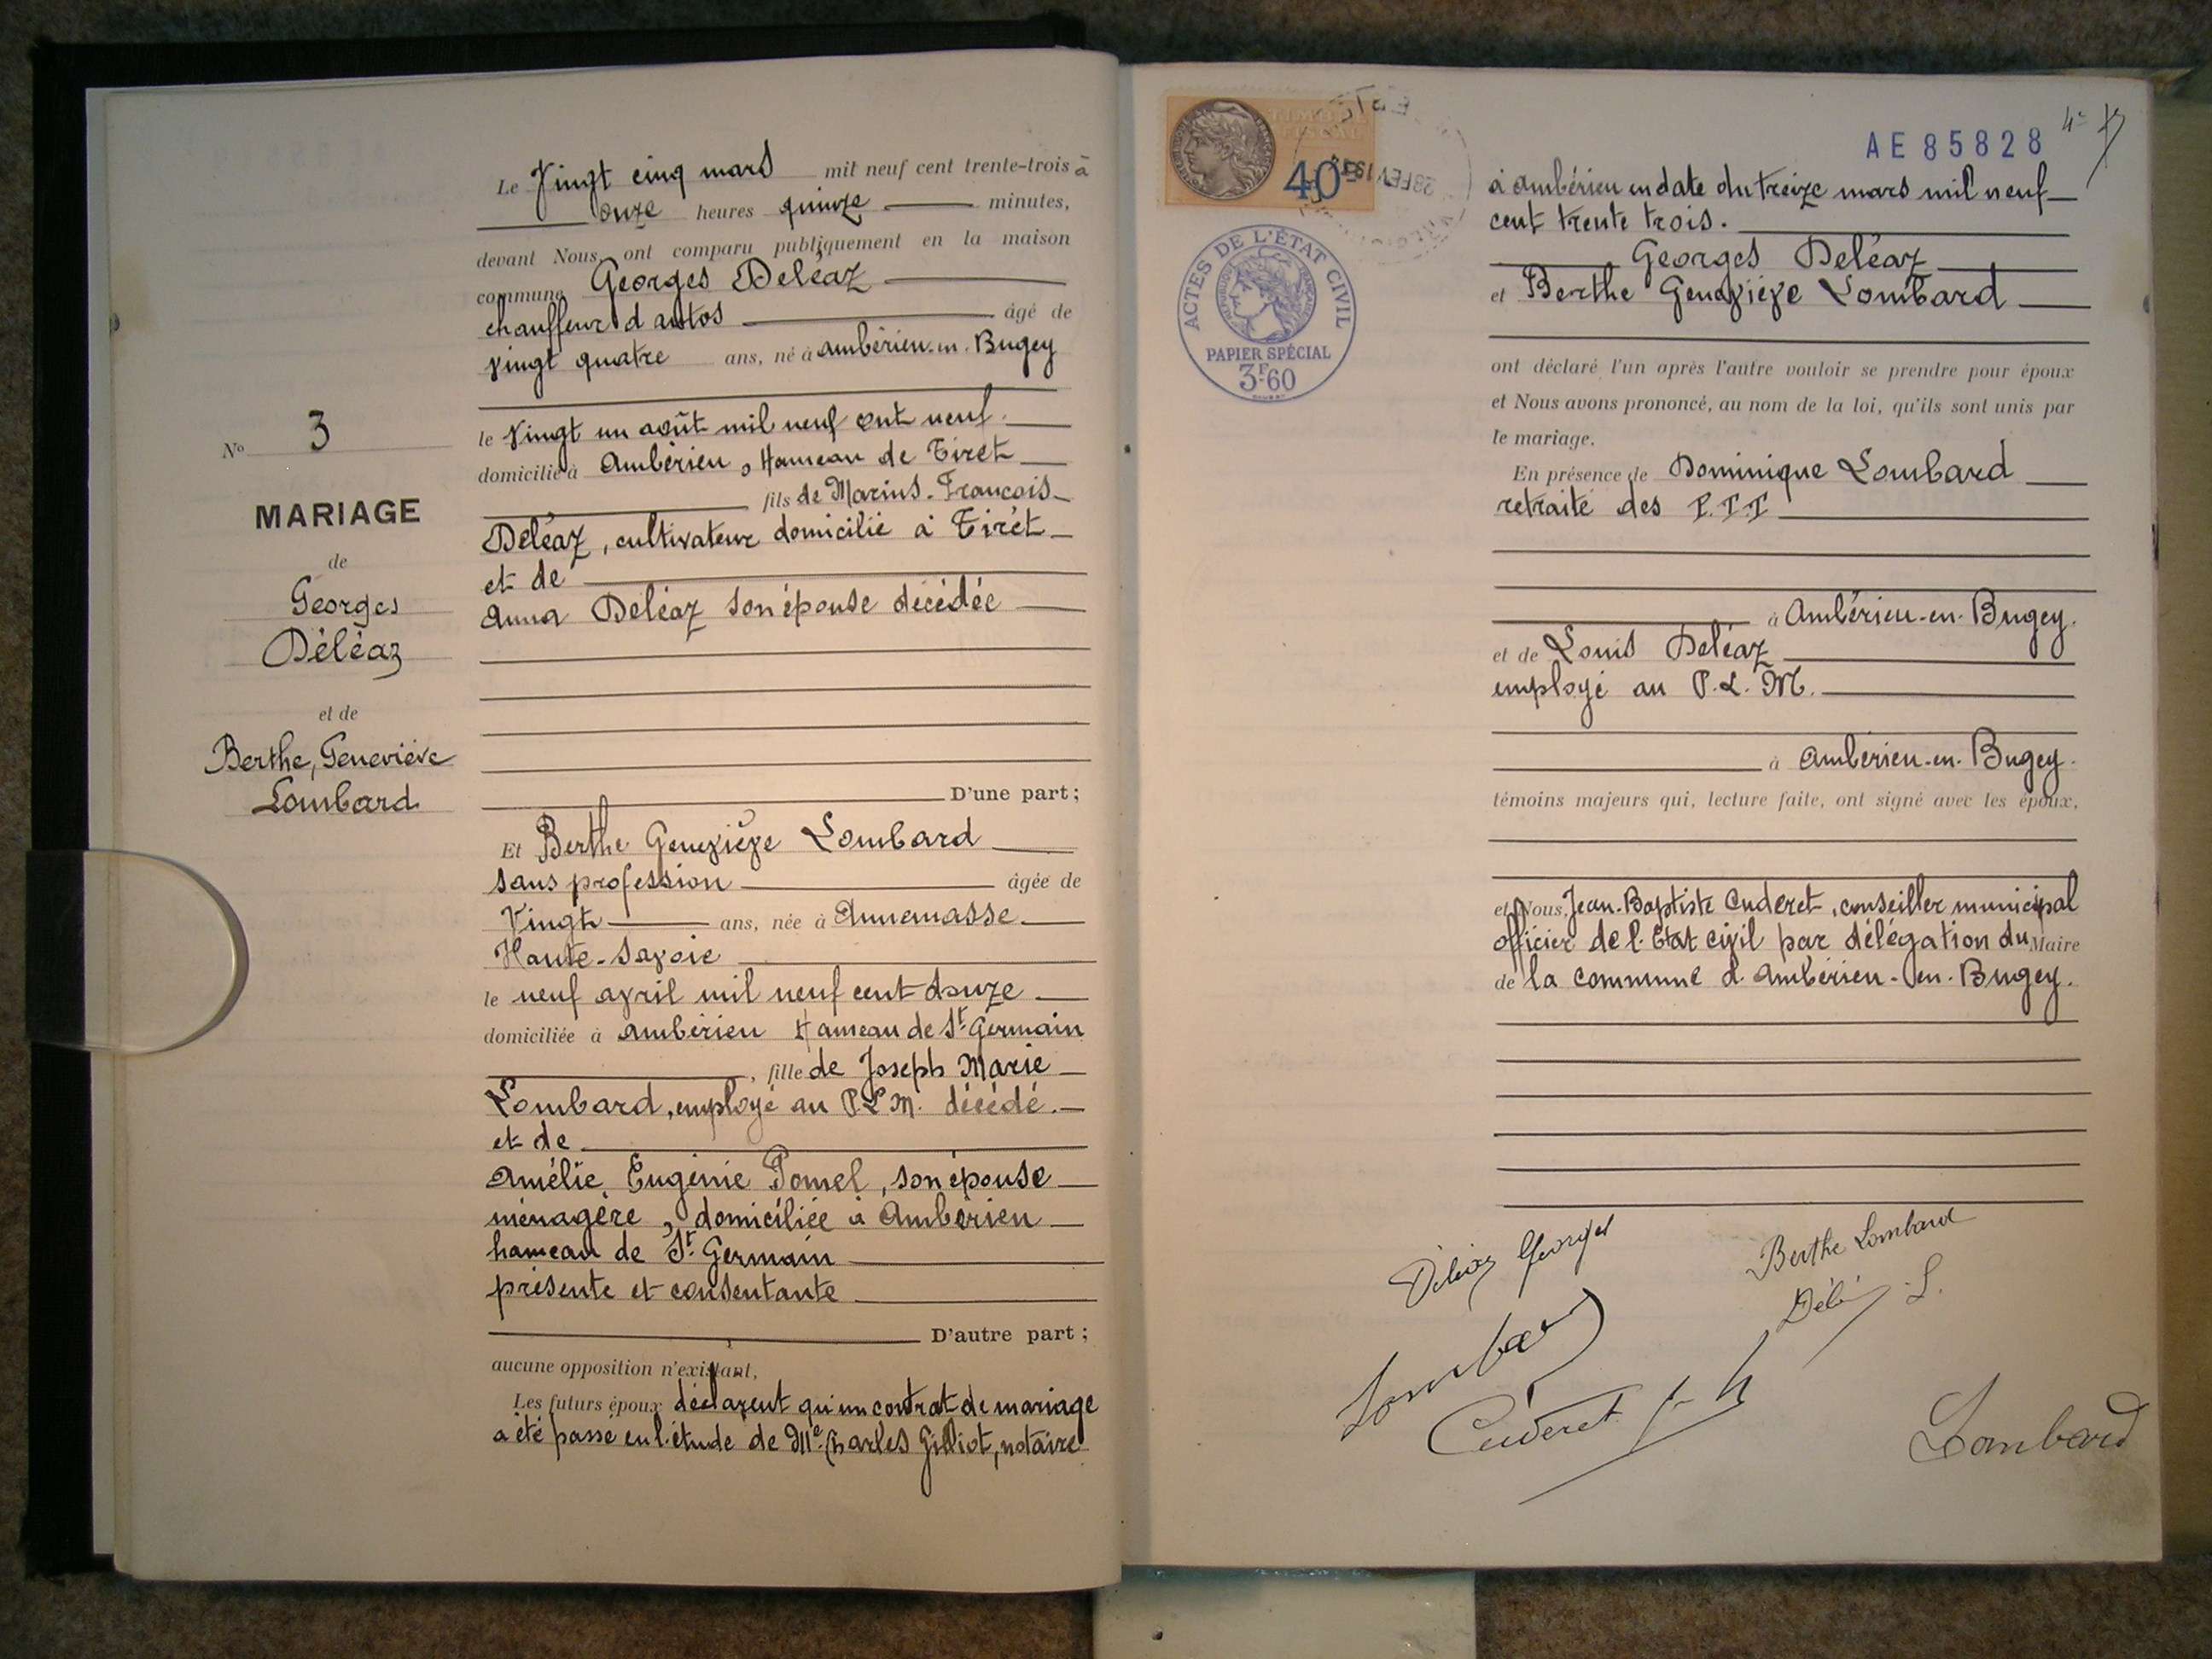 No 3
MARIAGE
de
Georges
Déléaz
et de
Berthe, Geneviève
Lombard
Le Vingt cinq mars mil neuf cent trente-trois à
onze heures quinze minutes,
devant Nous, ont comparu publiquement en la maison
commune Georges Deléaz
chauffeur d'autos âgé de
vingt quatre ans, né à Ambérieu-en-Bugey
le vingt un août mil neuf cent neuf.
domicilié à Ambérieu, Hameau de Tiret
fils de Marius-François
Deléaz, cultivateur domicilié à Tirét
et de
Anna Deléaz son épouse décédée
D'une part;
Et Berthe Geneviève Lombard
sans profession âgée de
Vingt ans, née à Annemasse
Haute-Savoie
le neuf avril mil neuf cent douze
domiciliée à Ambérieu Hameau de St. Germain
, fille de Joseph Marie
Lombard, employé au P.L.M. décédé.
et de
Amélie, Eugénie Pomel, son épouse
ménagère, domiciliée à Ambérieu
hameau de St. Germain
présente et consentante
D'autre part;
aucune opposition n'existant,
Les futurs époux déclarent qu'un contrat de mariage
a été passé en l'étude de Me. Charles Gilliot, notaire
40
ACTES DE L'ÉTAT CIVIL
PAPIER SPÉCIAL
3F60
AE 85828
à Ambérieu en date du treize mars mil neuf
cent trente trois.
Georges Deléaz
et Berthe Geneviève Lombard
ont déclaré l'un après l'autre vouloir se prendre pour époux
et Nous avons prononcé, au nom de la loi, qu'ils sont unis par
le mariage.
En présence de Dominique Lombard
retraité des P.T.T
à Ambérieu-en-Bugey.
et de Louis Deléaz
employé au P.L.M.
à Ambérieu-en-Bugey.
témoins majeurs qui, lecture faite, ont signé avec les époux,
et Nous, Jean-Baptiste Cuderet, conseiller municipal
officier de l'Etat civil par délégation du Maire
de la commune d'Ambérieu-en-Bugey.
Déléaz Georges
Berthe Lombard
Lombard
Cuderet
Lombard